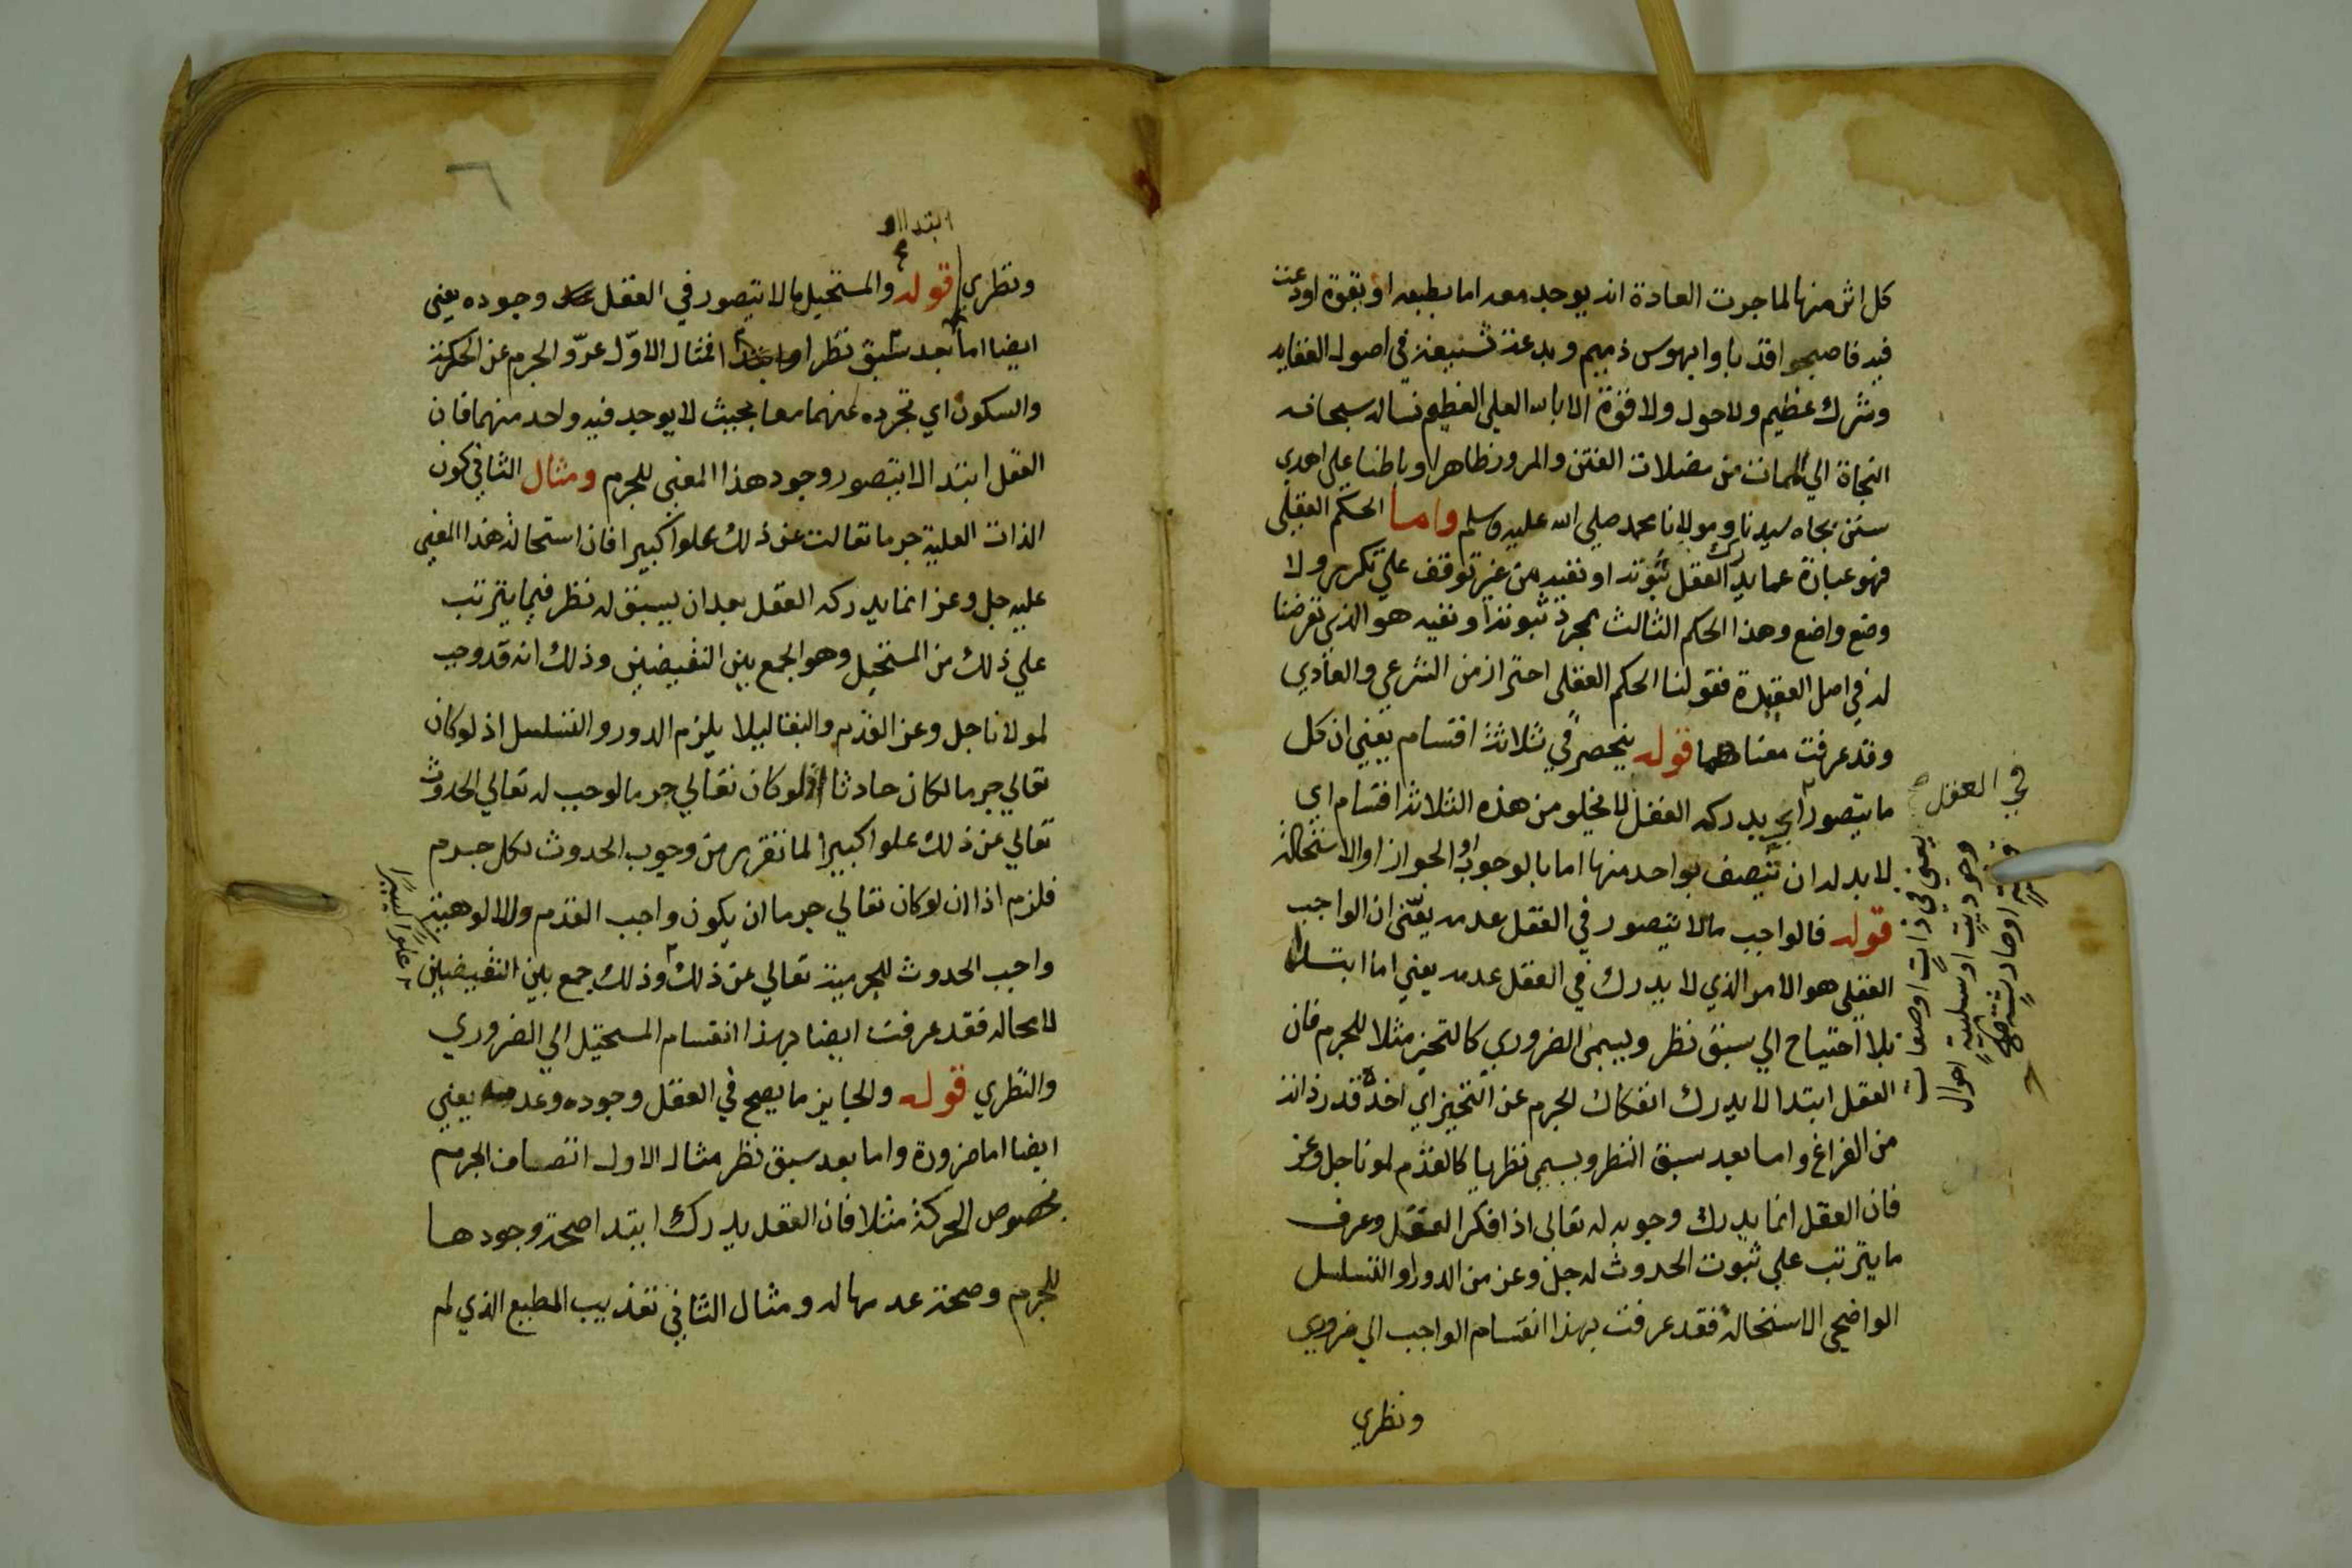 كل اثر منها لما جرت العادة انه يوجد معه اما بطبعه او بقوة اودعت
فيه فاصبحوا قد باوا بهوس ذميم وبدعة شنيعة في اصول العقايد
وشرك عظيم ولا حول ولا قوة الا بالله العلي العظيم نساله سبحانه
النجاة الي الممات من مضلات الفتن والمرور ظاهرا وباطنا علي اهدي
سنن بجاه سيدنا ومولانا محمد صلي الله عليه وسلم واما الحكم العقلي
فهو عبارة عما يدرك العقل ثبوته او نفيه من غير توقف علي تكرر ولا
وضع واضع وهذا الحكم الثالث بمجرد ثبوته او نفيه هو الذي تعرضنا
له في اصل العقيدة فقولنا الحكم العقلي احتراز من الشرعي والعادي
وقد عرفت معناهما قوله ينحصر في ثلاثة اقسام يعني ان كل
ما يتصور اي يدركه العقل لا يخلو من هذه الثلاثة اقسام اي
لا بد له ان يتصف بواحد منها اما بالوجوب او الجواز او الاستحالة
قوله فالواجب ما لا يتصور في العقل عدمه يعني ان الواجب
العقلي هو الامر الذي لا يدرك في العقل عدمه يعني اما ابتداء
بلا احتياج الي سبق نظر ويسمى الضروري كالتحيز مثلا للجرم فان
العقل ابتدا لا يدرك انفكاك الجرم عن التحيز اي اخذه قدر ذاته
من الفراغ واما بعد سبق النظر ويسمى نظريا كالقدم لمولانا جل وعز
فان العقل انما يدرك وجوبه له تعالى اذا فكر العقل وعرف
ما يترتب علي ثبوت الحدوث له جل وعز من الدور او التسلسل
الواضحي الاستحالة فقد عرفت بهذا انقسام الواجب الي ضروري
ونظري
في العقل صح
يعني في ذات او صفات
وجودية او سلبية احوال
قديمة او حادثة صح
ابتداا
ونظري قوله والمستحيل ما لا يتصور في العقل وجوده يعني
ايضا اما بعد سبق نظر او ابتدا فمثال الاول عرو الجرم عن الحركة
والسكون اي تجرده عنهما معا بحيث لا يوجد فيه واحد منهما فان
العقل ابتدا لا يتصور وجود هذا المعنى للجرم ومثال الثاني كون
الذات العلية جرما تعالت عن ذلك علوا كبيرا فان استحالة هذا المعني
عليه جل وعز انما يدركه العقل بعد ان يسبق له نظر فيما يترتب
علي ذلك من المستحيل وهو الجمع بين النقيضين وذلك انه قد وجب
لمولانا جل وعز القدم والبقا ليلا يلزم الدور والتسلسل اذ لو كان
تعالي جرما لكان حادثا اذ لو كان تعالي جرما لوجب له تعالي الحدوث
تعالي عن ذلك علوا كبيرا لما تقرر من وجوب الحدوث لكل جرم
فلزم اذا ان لو كان تعالي جرما ان يكون واجب القدم والالوهية
واجب الحدوث للجرمية تعالي عن ذلك وذلك جمع بين النقيضين
لا محالة فقد عرفت ايضا بهذا انقسام المستحيل الي الضروري
والنظري قوله والجايز ما يصح في العقل وجوده وعدمه يعني
ايضا اما ضرورة واما بعد سبق نظر مثال الاول اتصاف الجرم
بخصوص الحركة مثلا فان العقل يدرك ابتدا صحة وجودها
للجرم وصحة عدمها له ومثال الثاني تعذيب المطيع الذي لم
علوا كبيرا